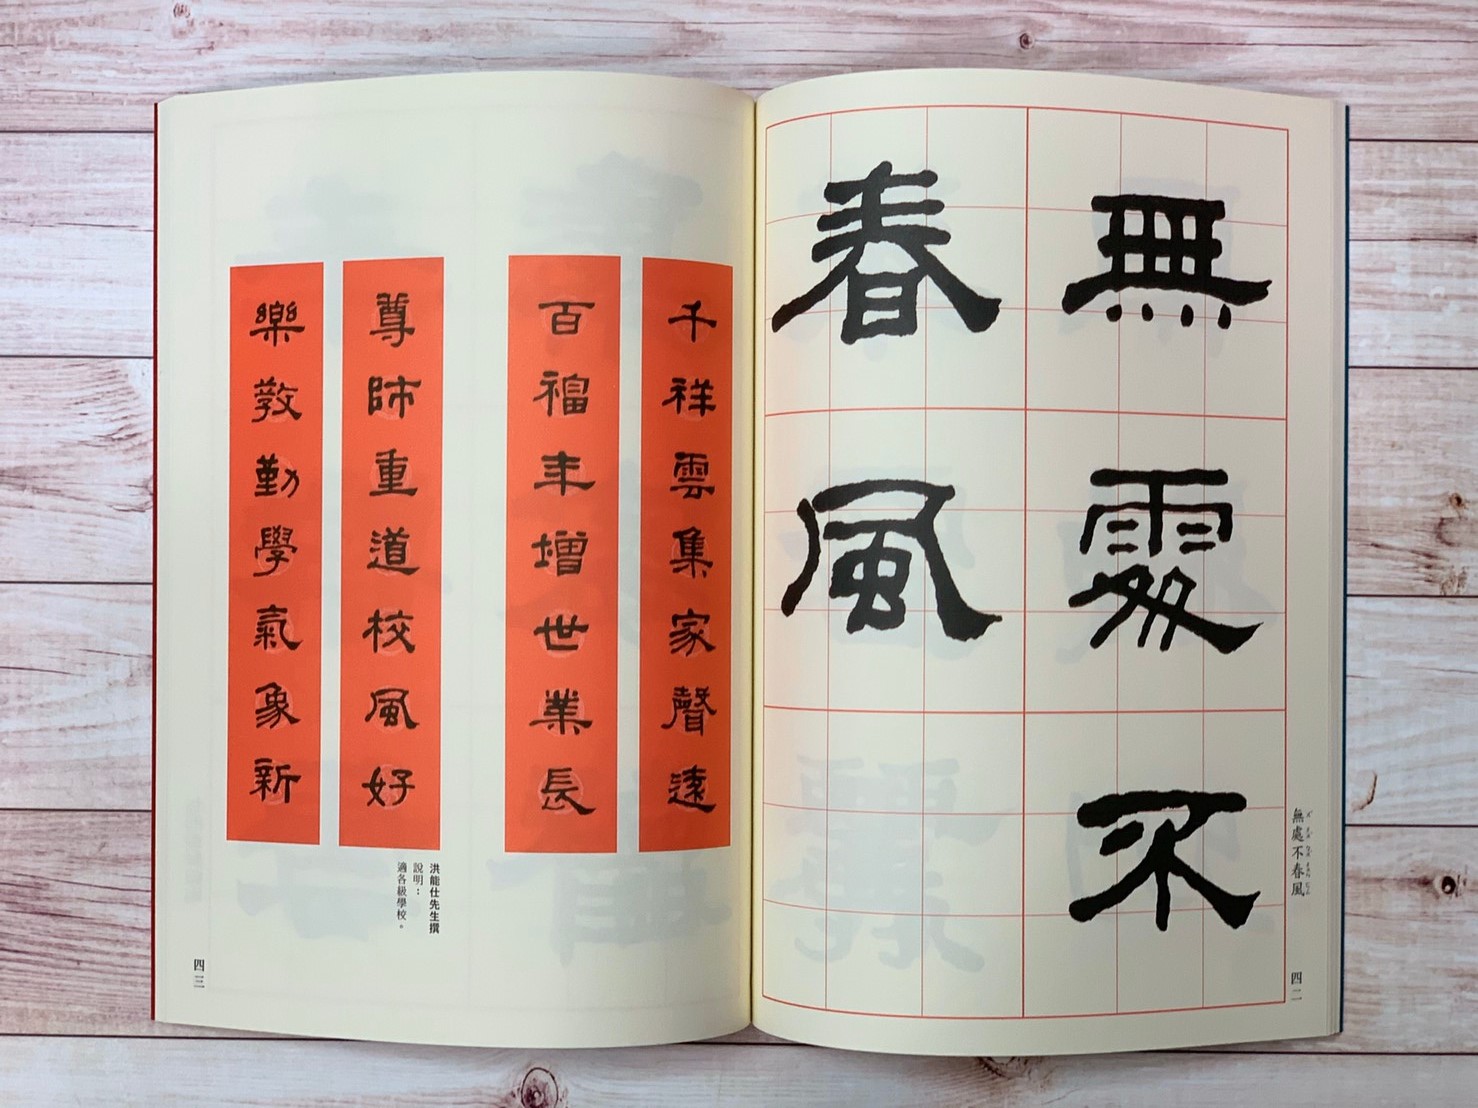 無處不
春風
無處不春風
四二
千祥雲集家聲遠
百福年增世業長
尊師重道校風好
樂教勤學氣象新
洪能仕先生撰
說明：
適各級學校。
四三